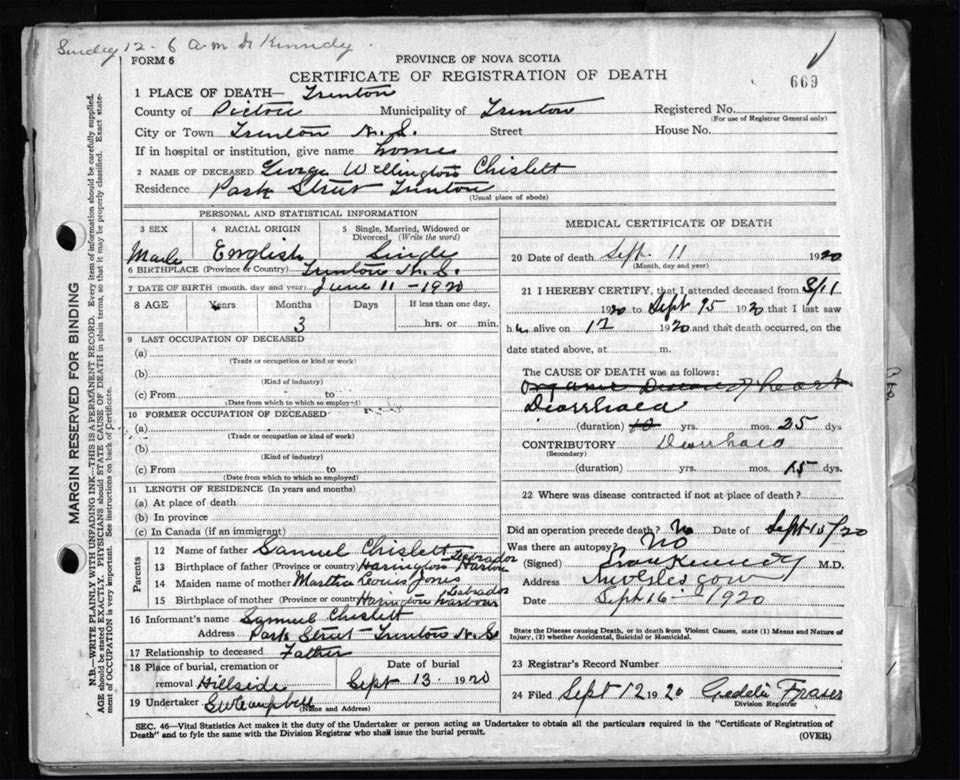 Sunday 12 - 6 a.m. Dr Kennedy
FORM 6
PROVINCE OF NOVA SCOTIA
CERTIFICATE OF REGISTRATION OF DEATH
669
1 PLACE OF DEATH— Trenton
County of Pictou Municipality of Trenton Registered No.
(For use of Registrar General only)
City or Town Trenton N.S. Street House No.
If in hospital or institution, give name home
2 NAME OF DECEASED George Wellington Chislett
Residence Park Street Trenton
(Usual place of abode)
MARGIN RESERVED FOR BINDING
N.B.—WRITE PLAINLY WITH UNFADING INK—THIS IS A PERMANENT RECORD. Every item of information should be carefully supplied.
AGE should be stated EXACTLY. PHYSICIANS should STATE CAUSE OF DEATH in plain terms, so that it may be properly classified. Exact state-
ment of OCCUPATION is very important. See instructions on back of Certificate.
PERSONAL AND STATISTICAL INFORMATION
3 SEX 4 RACIAL ORIGIN 5 Single, Married, Widowed or
Divorced (Write the word)
Male English Single
6 BIRTHPLACE (Province or Country) Trenton N.S.
7 DATE OF BIRTH (month, day and year) June 11 - 1920
8 AGE Years Months Days If less than one day,
3 hrs. or min.
9 LAST OCCUPATION OF DECEASED
(a)
(Trade or occupation or kind or work)
(b)
(Kind of industry)
(c) From to
(Date from which to which so employed)
10 FORMER OCCUPATION OF DECEASED
(a)
(Trade or occupation or kind of work)
(b)
(Kind of industry)
(c) From to
(Date from which to which so employed)
11 LENGTH OF RESIDENCE (In years and months)
(a) At place of death
(b) In province
(c) In Canada (if an immigrant)
Parents
12 Name of father Samuel Chislett
13 Birthplace of father (Province or country) Harington Harbor Labrador
14 Maiden name of mother Martha Louis Jones
15 Birthplace of mother (Province or country) Harington Harbour Labrador
16 Informant's name Samuel Chislett
Address Park Street - Trenton N.S.
17 Relationship to deceased Father
18 Place of burial, cremation or Date of burial
removal Hillside Sept 13 1920
19 Undertaker G W Campbell
(Name and Address)
MEDICAL CERTIFICATE OF DEATH
20 Date of death Sept. 11 1920
(Month, day and year)
21 I HEREBY CERTIFY, that I attended deceased from 3/11
1920 to Sept 15 1920 that I last saw
h alive on 12 1920 and that death occurred, on the
date stated above, at m.
The CAUSE OF DEATH was as follows:
Organic Disease of heart
Diarrhaea
(duration) 10 yrs. mos. 25 dys
CONTRIBUTORY Diarrhaea
(Secondary)
(duration) yrs. mos. 15 dys.
22 Where was disease contracted if not at place of death?
Did an operation precede death? No Date of Sept 15/20
Was there an autopsy? NO
(Signed) Kennedy M.D.
Address New Glasgow
Date Sept 16 - 1920
State the Disease causing Death, or in death from Violent Causes, state (1) Means and Nature of
Injury, (2) whether Accidental, Suicidal or Homicidal.
23 Registrar's Record Number
24 Filed Sept 12 1920 Geddie Fraser
Division Registrar
SEC. 46—Vital Statistics Act makes it the duty of the Undertaker or person acting as Undertaker to obtain all the particulars required in the "Certificate of Registration of
Death" and to fyle the same with the Division Registrar who shall issue the burial permit.
(OVER)